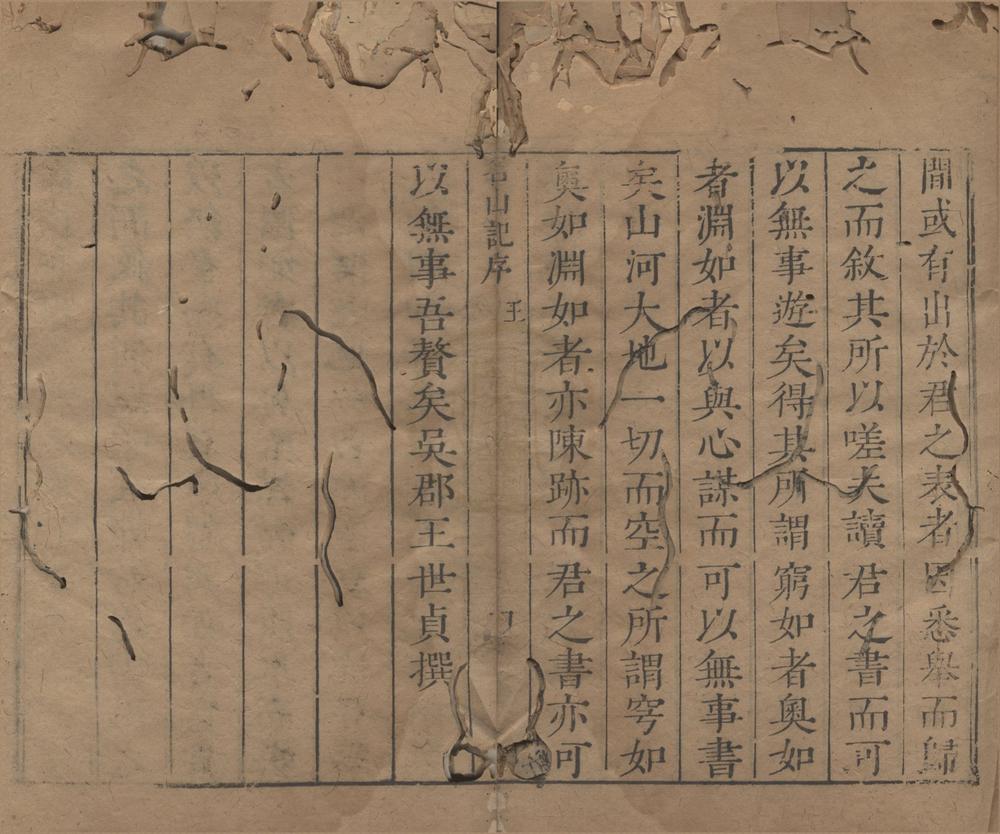 間或有出於君之表者因悉舉而歸
之而敘其所以嗟夫讀君之書而可
以無事遊矣得其所謂窮如者奥如
者淵如者以與心謀而可以無事書
矣山河大地一切而空之所謂穹如
奥如淵如者亦陳跡而君之書亦可
山記序
王
以無事吾贅矣吳郡王世貞撰